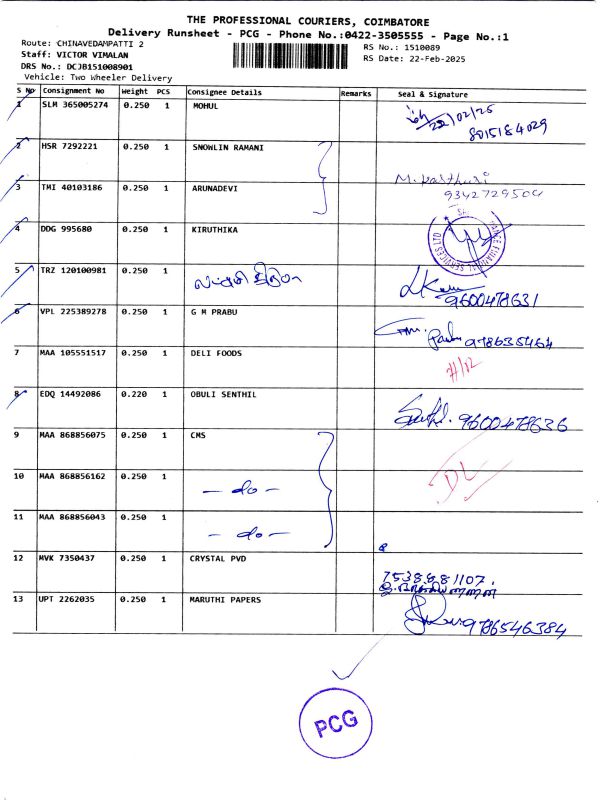 THE PROFESSIONAL COURIERS, COIMBATORE
Delivery Runsheet - PCG - Phone No.:0422-3505555 - Page No.:1
Route: CHINAVEDAMPATTI 2
RS No.: 1510089
Staff: VICTOR VIMALAN
RS Date: 22-Feb-2025
DRS No.: DCJB151008901
Vehicle: Two Wheeler Delivery
S No Consignment No Weight PCS Consignee Details Remarks Seal & Signature
1 SLM 365005274 0.250 1 MOHUL 22/02/25
8015184029
2 HSR 7292221 0.250 1 SNOWLIN RAMANI
3 TMI 40103186 0.250 1 ARUNADEVI
4 DDG 995680 0.250 1 KIRUTHIKA
5 TRZ 120100981 0.250 1 9600478631
6 VPL 225389278 0.250 1 G M PRABU
7 MAA 105551517 0.250 1 DELI FOODS
8 EDQ 14492086 0.220 1 OBULI SENTHIL 9600478636
9 MAA 868856075 0.250 1 CMS
10 MAA 868856162 0.250 1 — do — DL
11 MAA 868856043 0.250 1 — do —
12 MVK 7350437 0.250 1 CRYSTAL PVD
13 UPT 2262035 0.250 1 MARUTHI PAPERS 9786546384
PCG